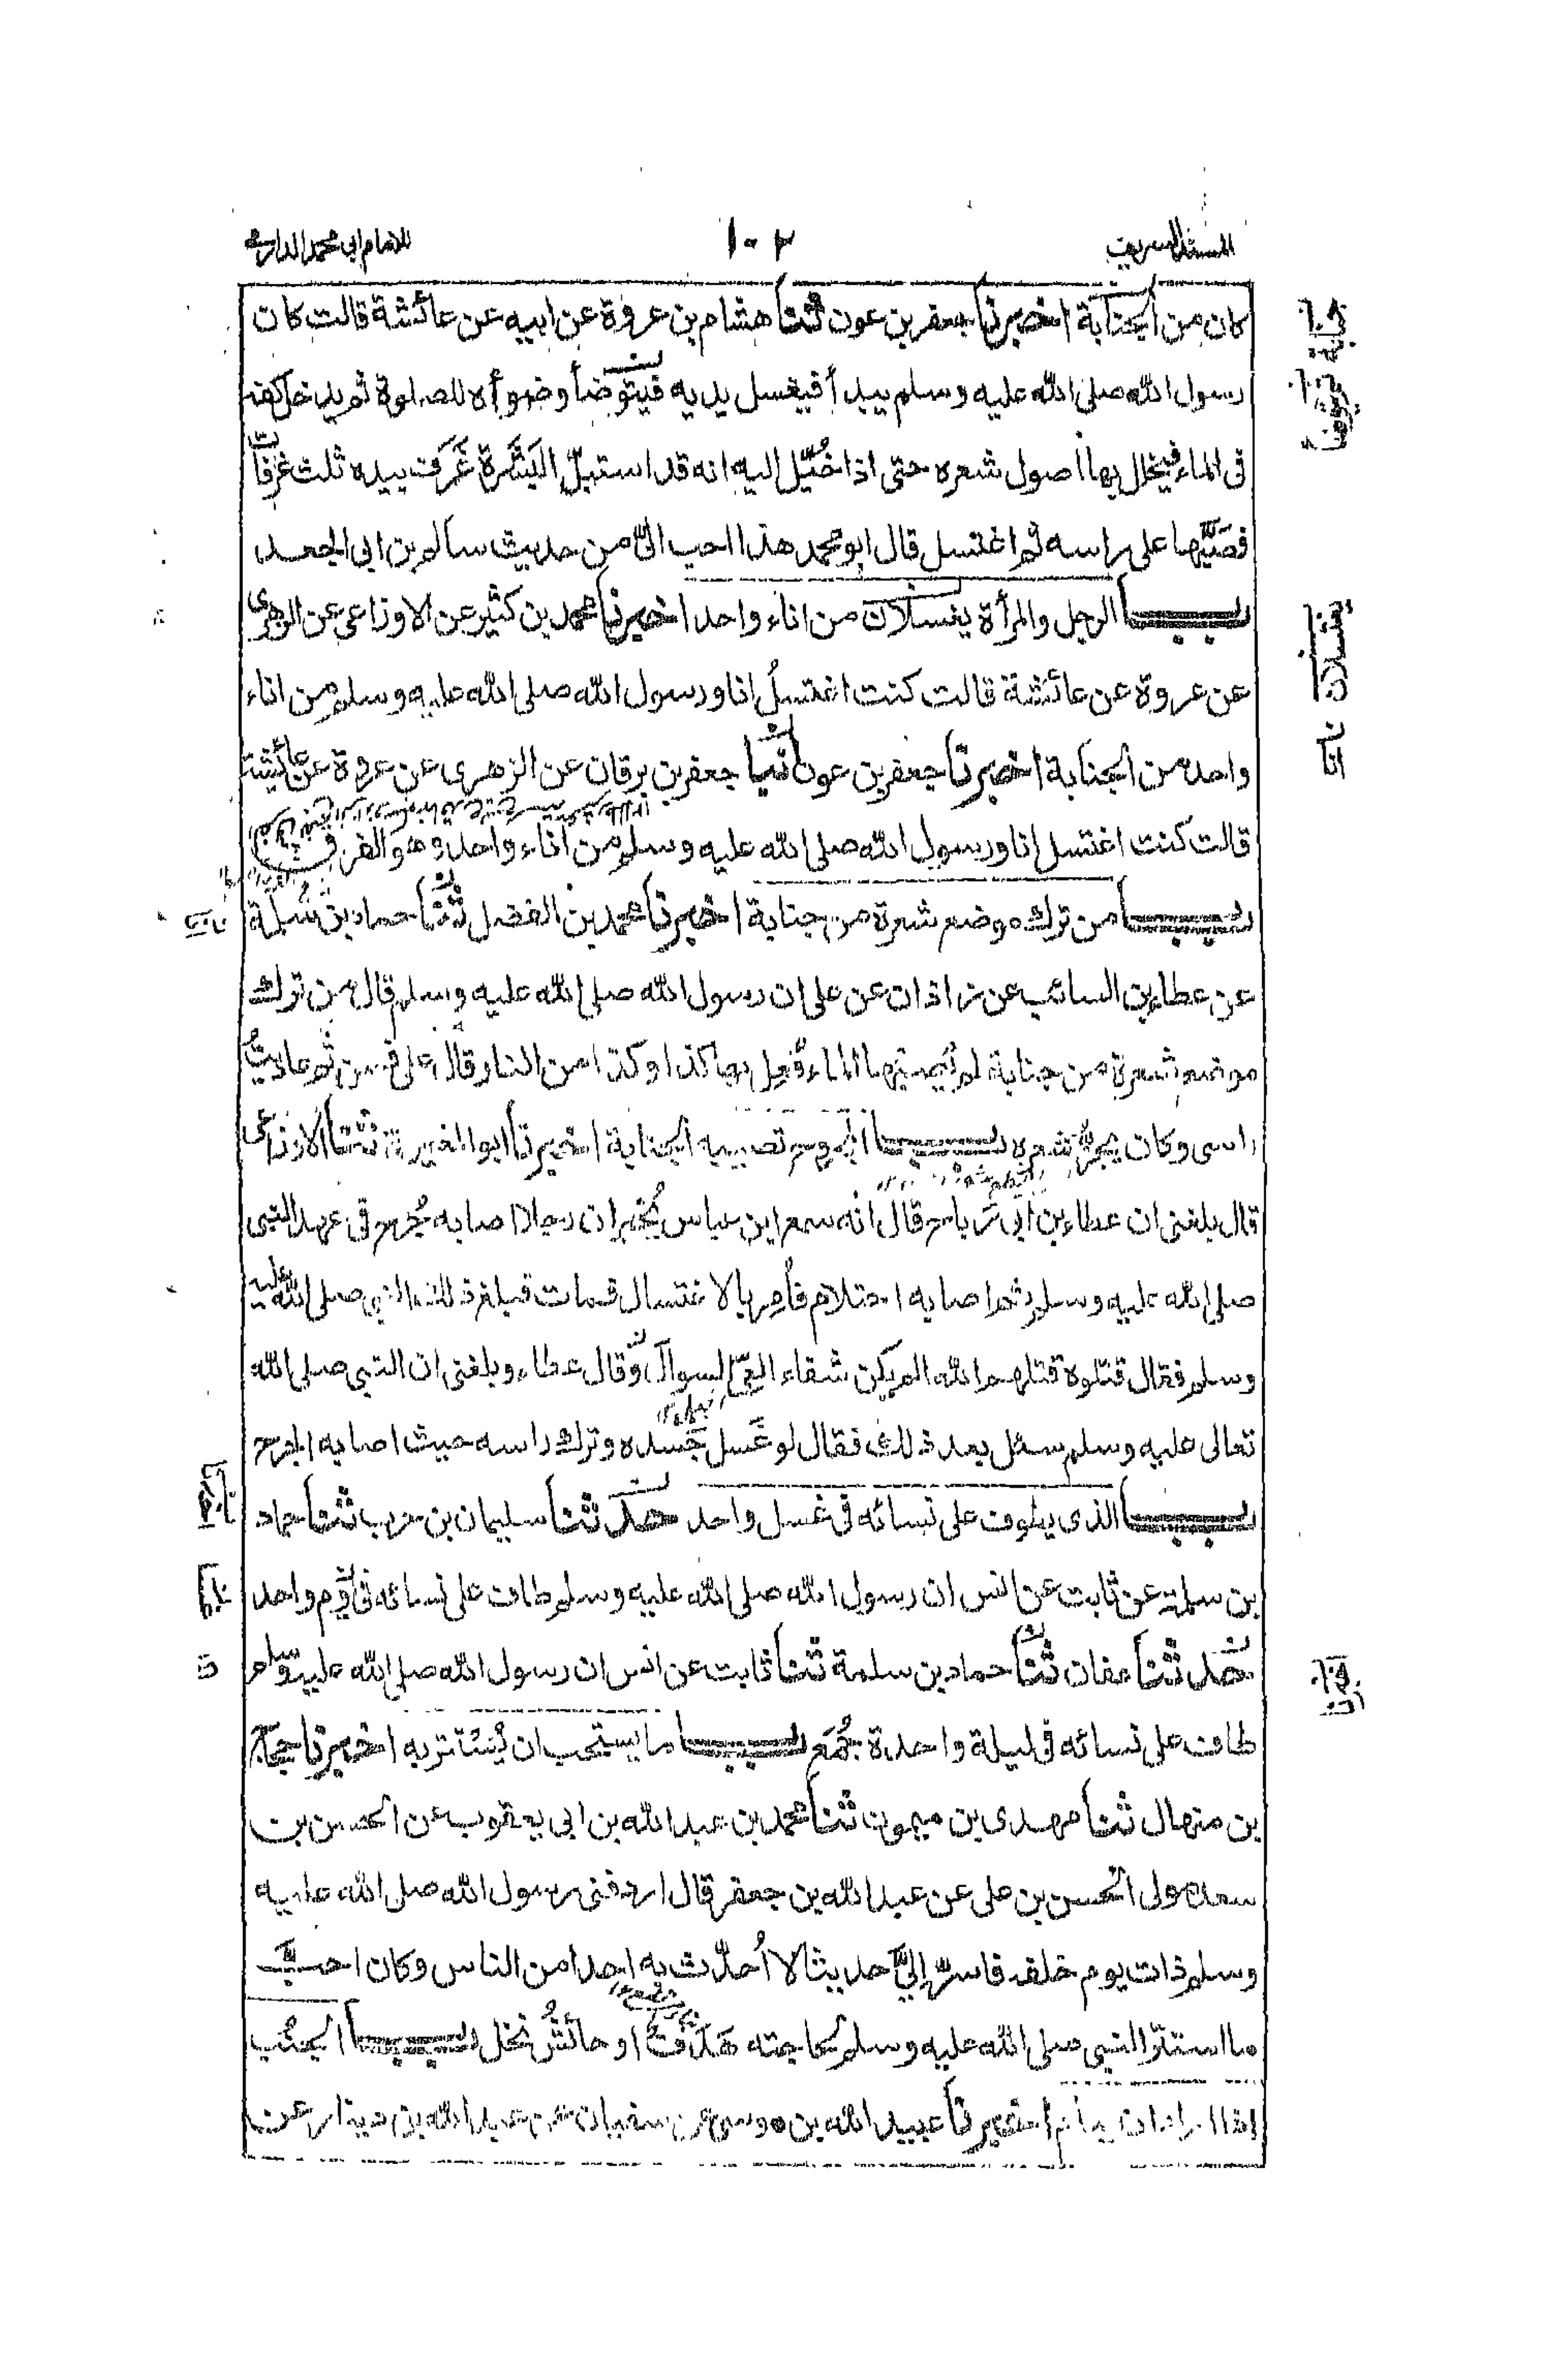 المسند الشريف
١٠٢
للامام ابي محمد الدارمي
كان من الجنابة اخبرنا جعفر بن عون ثنا هشام بن عروة عن ابيه عن عائشة قالت كان
رسول الله صلى الله عليه وسلم يبدأ فيغسل يديه فيتوضأ وضوأه للصلوة ثم يدخل كفه
فى الماء فيخلل بها اصول شعره حتى اذا خُيّل اليه انه قد استبلّ البَشَرة غَرَفَ بيده ثلث غَرَفات
فصَبَّها على راسه ثم اغتسل قال ابو محمد هذا احب الىّ من حديث سالم بن ابى الجعد
باب الرجل والمرأة يغتسلان من اناء واحد اخبرنا محمد بن كثير عن الاوزاعى عن الزهرى
عن عروة عن عائشة قالت كنت اغتسلُ انا ورسول الله صلى الله عليه وسلم من اناء
واحد من الجنابة اخبرنا جعفر بن عون انبا جعفر بن برقان عن الزهرى عن عروة عن عائشة
قالت كنت اغتسل انا ورسول الله صلى الله عليه وسلم من اناء واحد وهو الفرق
باب من ترك موضع شعرة من جنابة اخبرنا محمد بن الفضل ثنا حماد بن سلمة
عن عطاء بن السائب عن زاذان عن على ان رسول الله صلى الله عليه وسلم قال من ترك
موضع شعرة من جنابة لم يُصبها الماء فُعِل بها كذا وكذا من النار قال على فمن ثم عاديتُ
راسى وكان يجزّ شعره باب المجروح تصيبه الجنابة اخبرنا ابو المغيرة ثنا الاوزاعى
قال بلغنى ان عطاء بن ابى رَباح قال انه سمع ابن عباس يُخبر ان رجلا اصابه جُرح فى عهد النبى
صلى الله عليه وسلم ثم اصابه احتلام فأُمِر بالاغتسال فمات فبلغ ذلك النبى صلى الله عليه
وسلم فقال قتلوه قتلهم الله الم يكن شفاء العِىّ السوال وقال عطاء وبلغنى ان النبى صلى الله
تعالى عليه وسلم سئل بعد ذلك فقال لو غَسل جَسده وترك راسه حيث اصابه الجرح
باب الذى يطوف على نسائه فى غسل واحد حدثنا سليمان بن حرب ثنا حماد
بن سلمة عن ثابت عن انس ان رسول الله صلى الله عليه وسلم طاف على نسائه فى يوم واحد
حدثنا عفان ثنا حماد بن سلمة ثنا ثابت عن انس ان رسول الله صلى الله عليه وسلم
طاف على نسائه فى ليلة واحدة جُمَع باب ما يستحب ان يُستتر به اخبرنا حجاج
بن منهال ثنا مهدى بن ميمون ثنا محمد بن عبد الله بن ابى يعقوب عن الحسن بن
سعد مولى الحسن بن على عن عبد الله بن جعفر قال اردفنى رسول الله صلى الله عليه
وسلم ذات يوم خلفه فاسرّ إليَّ حديثا لا اُحدّث به احدا من الناس وكان احبَّ
ما استتر النبى صلى الله عليه وسلم لحاجته هَدَفٌ او حائشُ نخل باب الجنُب
اذا اراد ان ينام اخبرنا عبيد الله بن موسى عن سفيان عن عبد الله بن دينار عن
يغتسلان